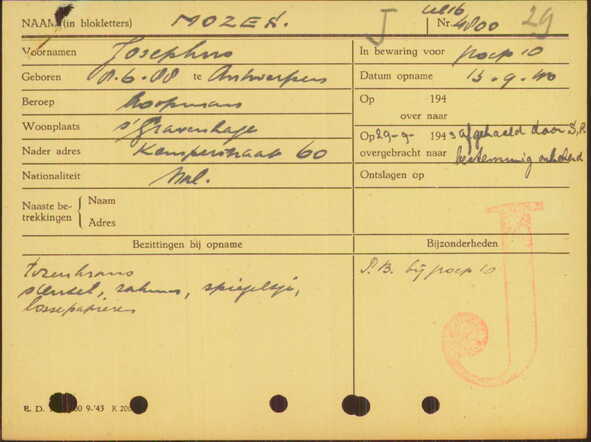 NAAM (in blokletters) MOZES. J cel 6 Nr. 4800 29
Voornamen Josephus In bewaring voor groep 10
Geboren 8.6.88 te Antwerpen Datum opname 13-9-40
Beroep Koopman Op 194
over naar
Woonplaats s'Gravenhage Op 29-9- 1943 afgehaald door D.P.
Nader adres Kemperstraat 60 overgebracht naar bestemming onbekend
Nationaliteit Ned. Ontslagen op
Naaste betrekkingen { Naam
Adres
Bezittingen bij opname Bijzonderheden
rozenkrans P.B. bij groep 10
sleutel, zakmes, spiegeltje,
losse papieren
J
E. D. 9-'43 K